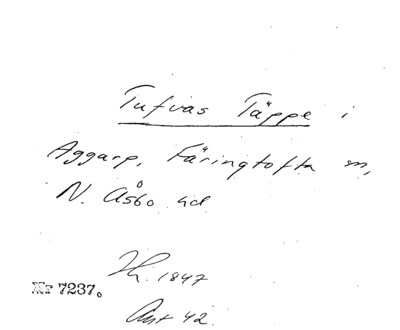 Tufvas Täppe i
Aggarp, Färingtofta sn,
N. Åsbo hd
1847
Nr 7237.
42